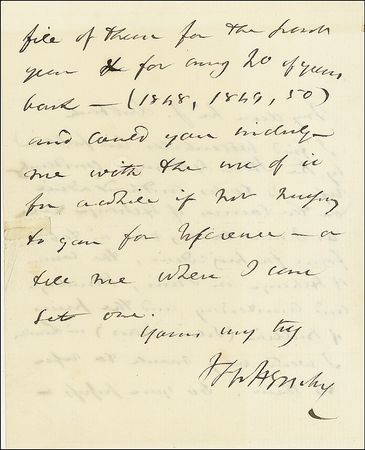 file of them for the
year & for any No of years
back — (1848, 1849, 50)
and could you indulge
me with the use of it
for a while if not
to you for reference — or
tell me where I can
get one.
Yours